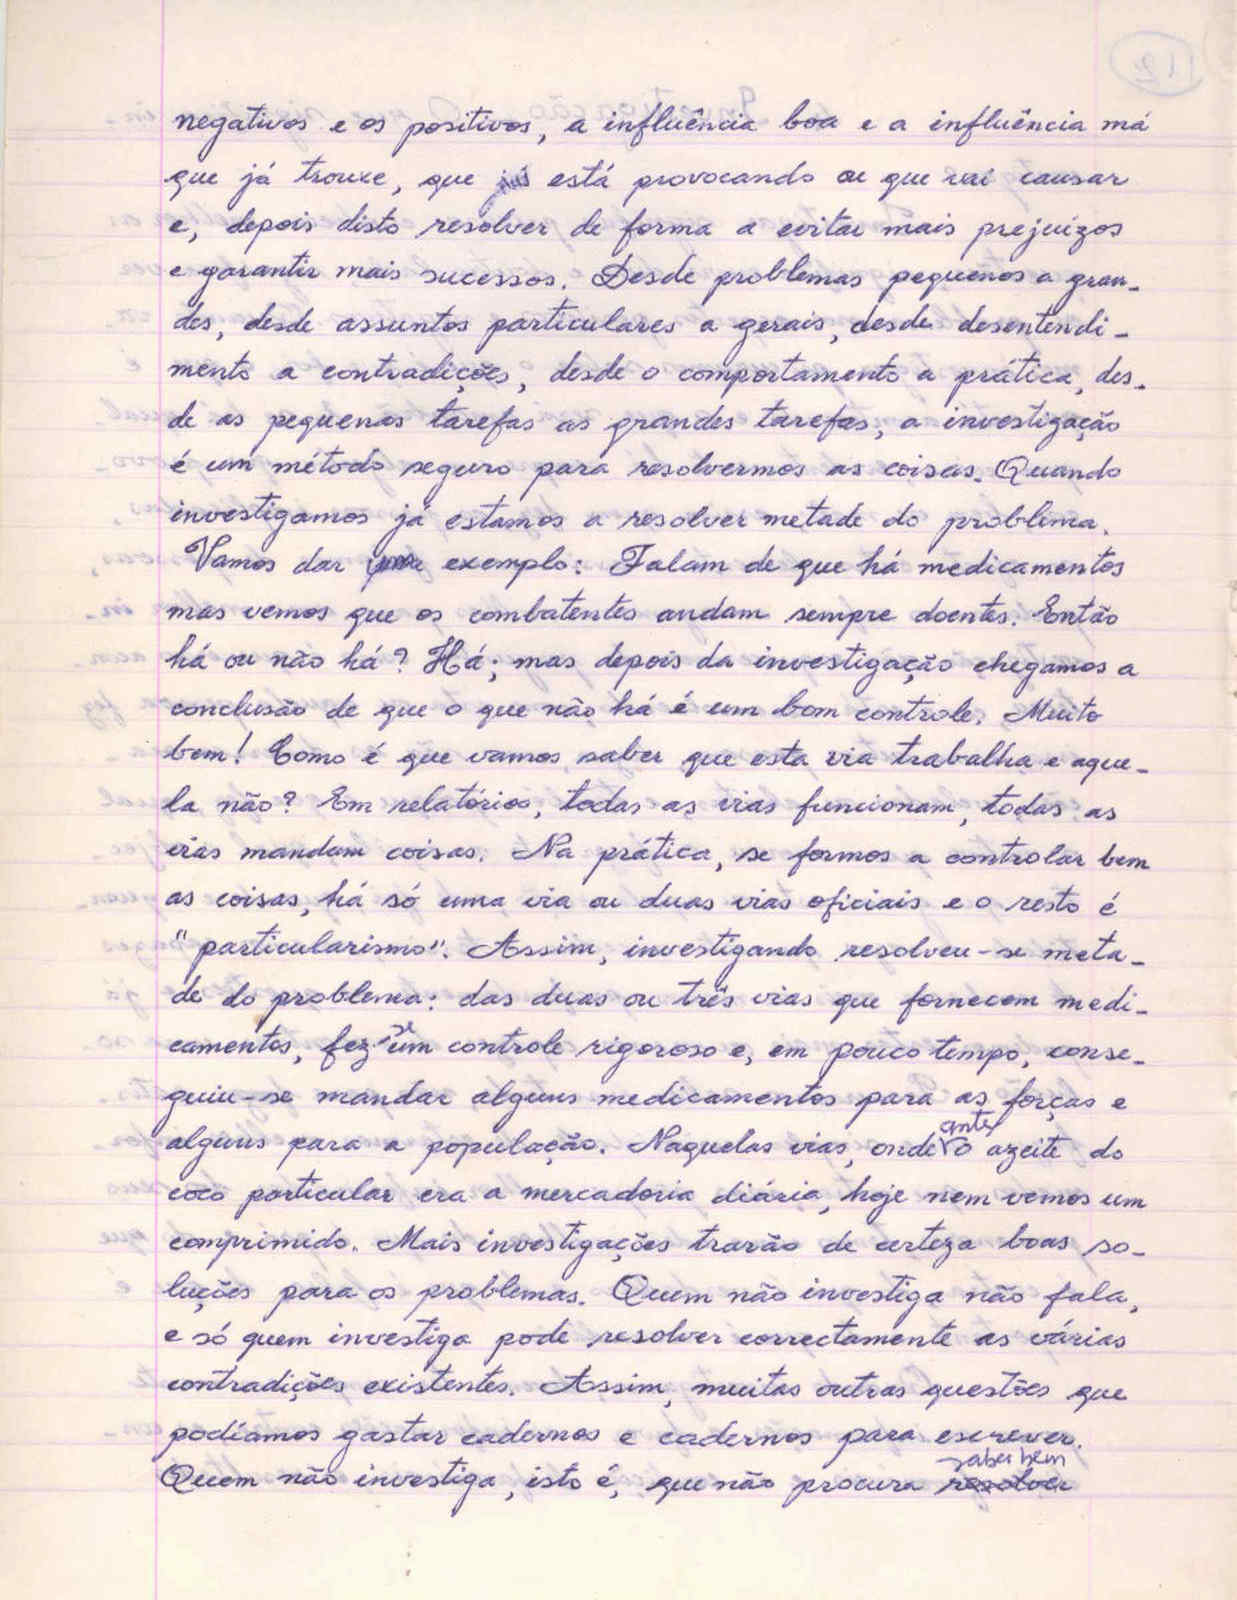 negativos e os positivos, a influência boa e a influência má
que já trouxe, que está provocando ou que vai causar
e, depois disto resolver de forma a evitar mais prejuízos
e garantir mais sucessos. Desde problemas pequenos a gran-
des, desde assuntos particulares a gerais, desde desentendi-
mento a contradições, desde o comportamento a prática, des-
de as pequenas tarefas as grandes tarefas, a investigação
é um método seguro para resolvermos as coisas. Quando
investigamos já estamos a resolver metade do problema.
Vamos dar um exemplo: Falam de que há medicamentos
mas vemos que os combatentes andam sempre doentes. Então
há ou não há? Há; mas depois da investigação chegamos a
conclusão de que o que não há é um bom controle. Muito
bem! Como é que vamos saber que esta via trabalha e aque-
la não? Em relatórios, todas as vias funcionam, todas as
vias mandam coisas. Na prática, se formos a controlar bem
as coisas, há só uma via ou duas vias oficiais e o resto é
"particularismo". Assim, investigando resolveu-se meta-
de do problema: das duas ou três vias que fornecem medi-
camentos, fez-se um controle rigoroso e, em pouco tempo, conse-
guiu-se mandar alguns medicamentos para as forças e
alguns para a população. Naquelas vias, onde antes o azeite do
coco particular era a mercadoria diária, hoje nem vemos um
comprimido. Mais investigações trarão de certeza boas so-
luções para os problemas. Quem não investiga não fala,
e só quem investiga pode resolver correctamente as várias
contradições existentes. Assim, muitas outras questões que
podíamos gastar cadernos e cadernos para escrever.
Quem não investiga, isto é, que não procura saber bem resolver